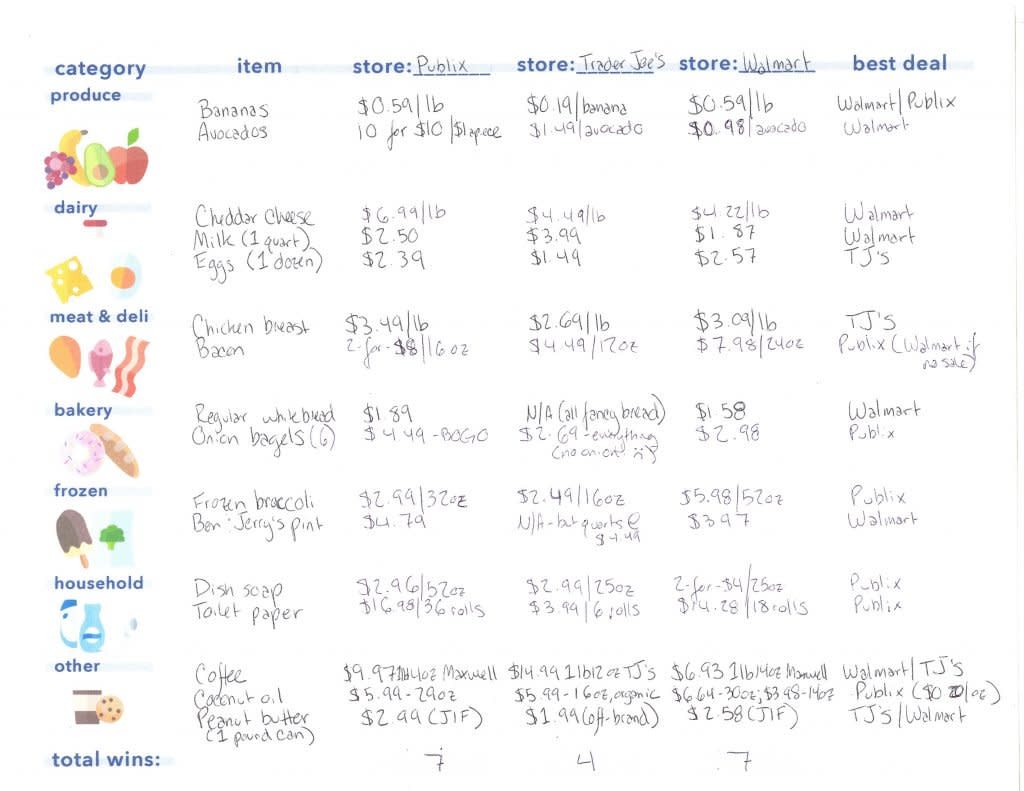 category item store: Publix store: Trader Joe's store: Walmart best deal
produce
Bananas $0.59/lb $0.19/banana $0.59/lb Walmart/Publix
Avocados 10 for $10/$1 apiece $1.49/avocado $0.98/avocado Walmart
dairy
Cheddar Cheese $6.99/lb $4.49/lb $4.22/lb Walmart
Milk (1 quart) $2.50 $3.99 $1.87 Walmart
Eggs (1 dozen) $2.39 $1.49 $2.57 TJ's
meat & deli
Chicken breast $3.49/lb $2.69/lb $3.09/lb TJ's
Bacon 2-for-$8/16oz $4.49/12oz $7.98/24oz Publix (Walmart if
no sale)
bakery
Regular white bread $1.89 N/A (all fancy bread) $1.58 Walmart
Onion bagels (6) $4.49-BOGO $2.69-everything $2.98 Publix
(no onion :()
frozen
Frozen broccoli $2.99/32oz $2.49/16oz $5.98/52oz Publix
Ben & Jerry's pint $4.79 N/A-but quarts @ $3.97 Walmart
$4.49
household
Dish soap $2.96/52oz $2.99/25oz 2-for-$4/25oz Publix
Toilet paper $16.98/36 rolls $3.99/6 rolls $14.28/18 rolls Publix
other
Coffee $9.97 Maxwell $14.99 1lb12oz TJ's $6.93 1lb14oz Maxwell Walmart/TJ's
Coconut oil $5.99-29oz $5.99-16oz, organic $6.64-30oz; $3.98-14oz Publix ($0.20/oz)
Peanut butter $2.99 (JIF) $1.99 (off-brand) $2.58 (JIF) TJ's/Walmart
(1 pound can)
total wins: 7 4 7